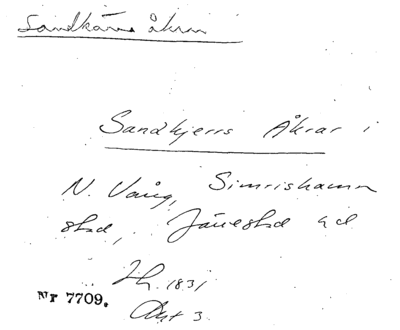 Sandkärrs åkrar
Sandkjerrs Åkrar i
N. Vång, Simrishamn
stad, Järrestad hd
Jh. 1831
Akt 3.
Nr 7709.